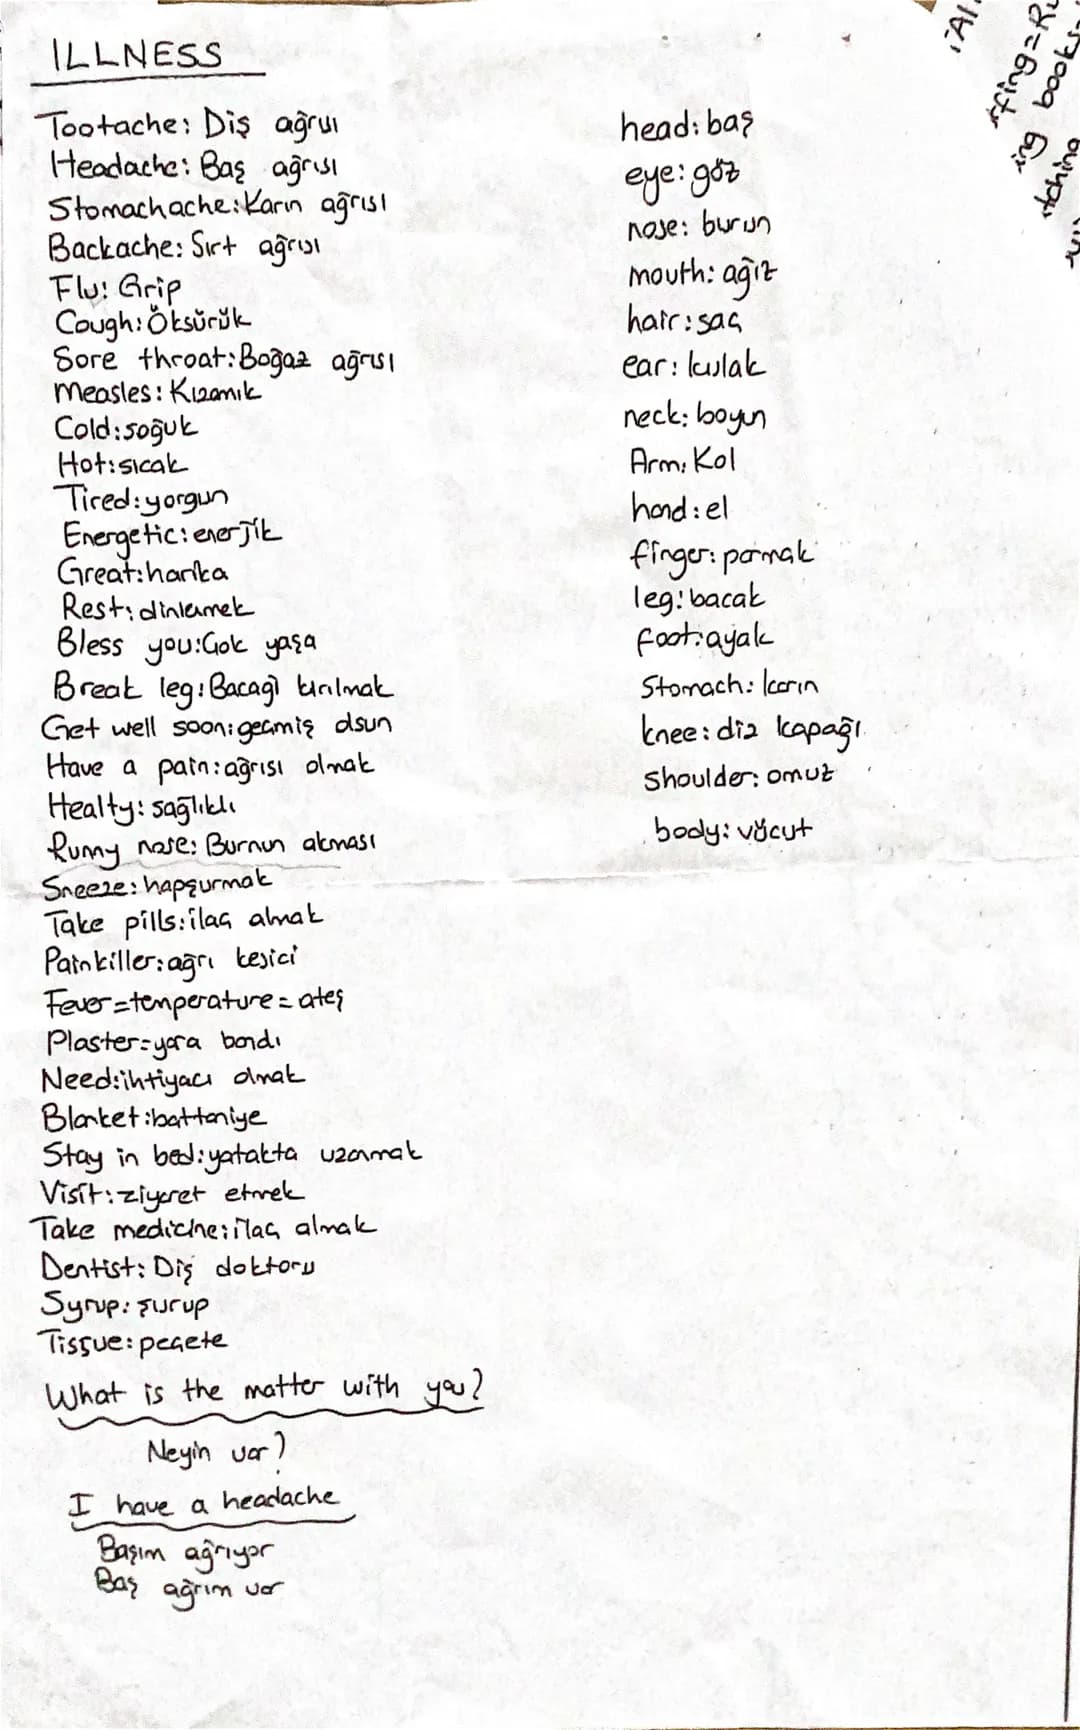 ILLNESS
Tootache: Diş ağrısı
Headache: Baş ağrısı
Stomachache: Karın ağrısı
Backache: Sırt ağrısı
Flu: Grip
Cough: Öksürük
Sore throat: Boğaz ağrısı
Measles: Kızamık
Cold: soğuk
Hot: sıcak
Tired: yorgun
Energetic: enerjik
Great: harika
Rest: dinlemek
Bless you: Çok yaşa
Break leg: Bacağı kırılmak
Get well soon: geçmiş olsun
Have a pain: ağrısı olmak
Healty: sağlıklı
Runny nose: Burnun akması
Sneeze: hapşurmak
Take pills: ilaç almak
Painkiller: ağrı kesici
Fever = temperature = ateş
Plaster = yara bandı
Need: ihtiyacı olmak
Blanket: battaniye
Stay in bed: yatakta uzanmak
Visit: ziyaret etmek
Take medicine: ilaç almak
Dentist: Diş doktoru
Syrup: şurup
Tissue: peçete
What is the matter with you?
Neyin var?
I have a headache
Başım ağrıyor
Baş ağrım var
head: baş
eye: göz
nose: burun
mouth: ağız
hair: saç
ear: kulak
neck: boyun
Arm: Kol
hand: el
finger: parmak
leg: bacak
foot: ayak
Stomach: karın
knee: diz kapağı
shoulder: omuz
body: vücut
ing books